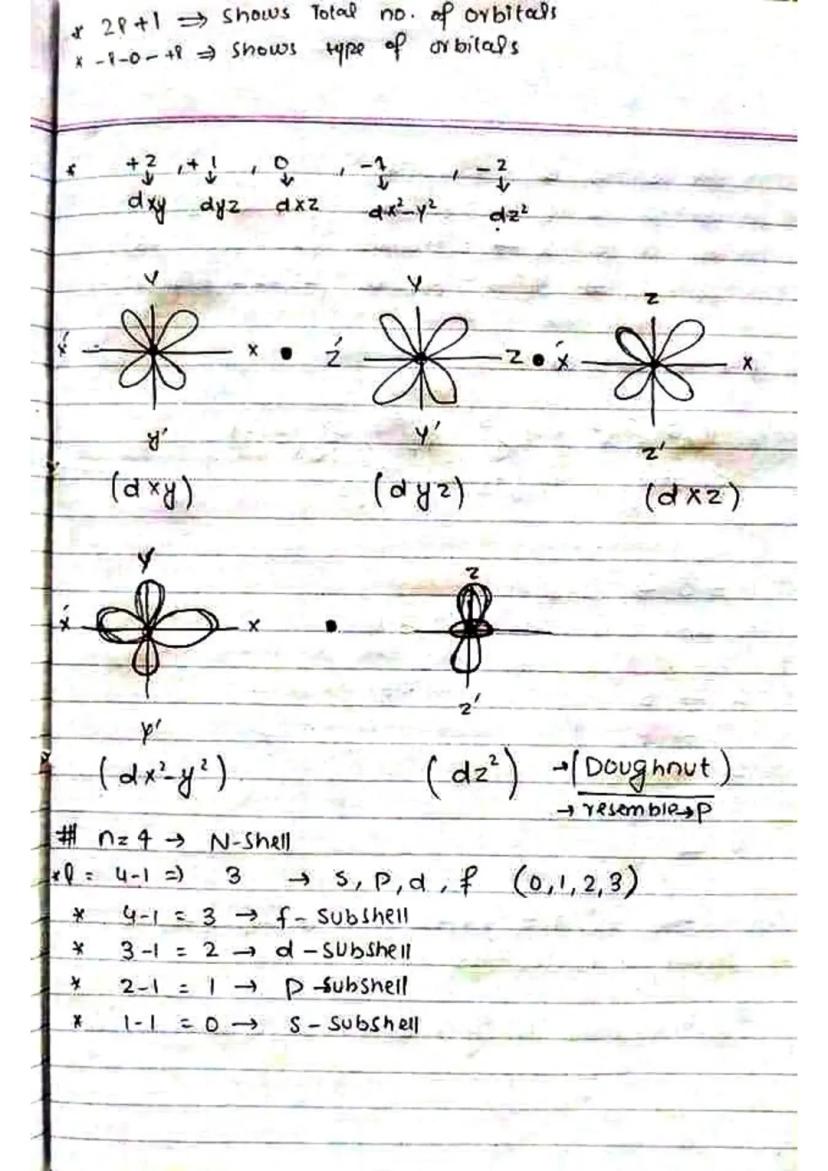 * 2l+1 ⇒ Shows Total no. of orbitals
* -l-0-+l ⇒ Shows type of orbitals
* +2 , +1 , 0 , -1 , -2
↓ ↓ ↓ ↓ ↓
dxy dyz dxz dx²-y² dz²
Y Y Z
x́ x • ź z • x́ x
y' Y' z'
(dxy) (dyz) (dxz)
Y Z
x́ x •
Y' z'
(dx²-y²) (dz²) → (Doughnut)
→ resemble→p
# n=4 → N-Shell
*l = 4-1 ⇒ 3 → s, p, d, f (0,1,2,3)
* 4-1 = 3 → f - Subshell
* 3-1 = 2 → d - Subshell
* 2-1 = 1 → p - Subshell
* 1-1 = 0 → s - Subshell